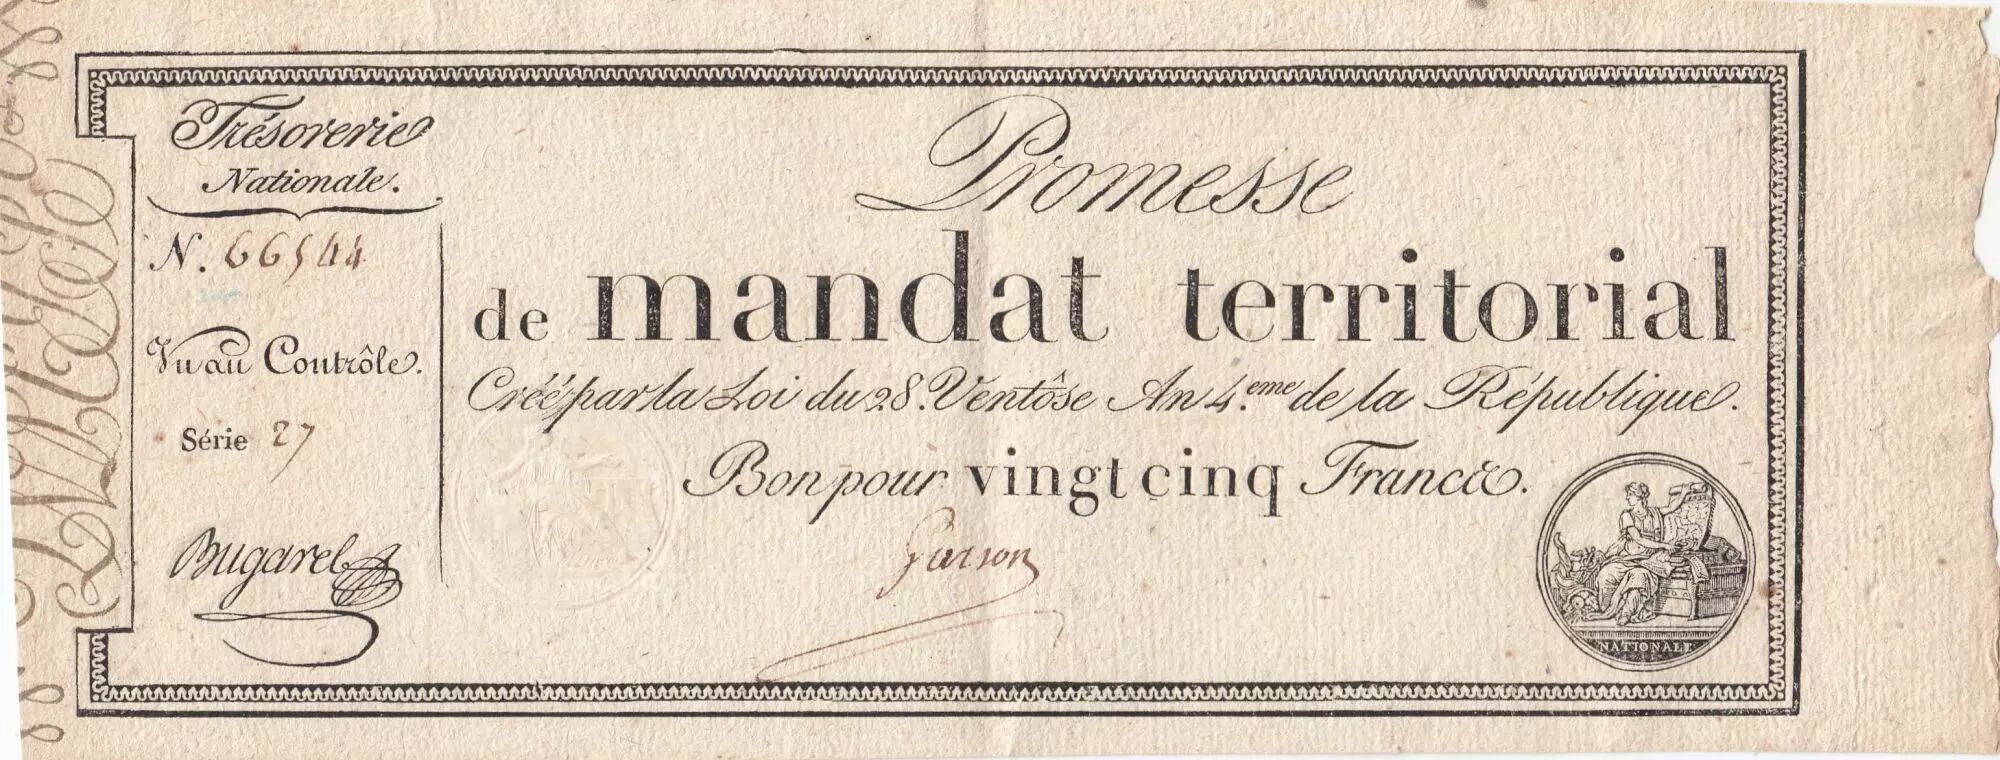 Trésorerie
Nationale.
N. 66544
Vu au Contrôle.
Série 27
Bugarel
Promesse
de mandat territorial
Créé par la Loi du 28. Ventôse An 4.eme de la République.
Bon pour vingt cinq Francs.
NATIONALE